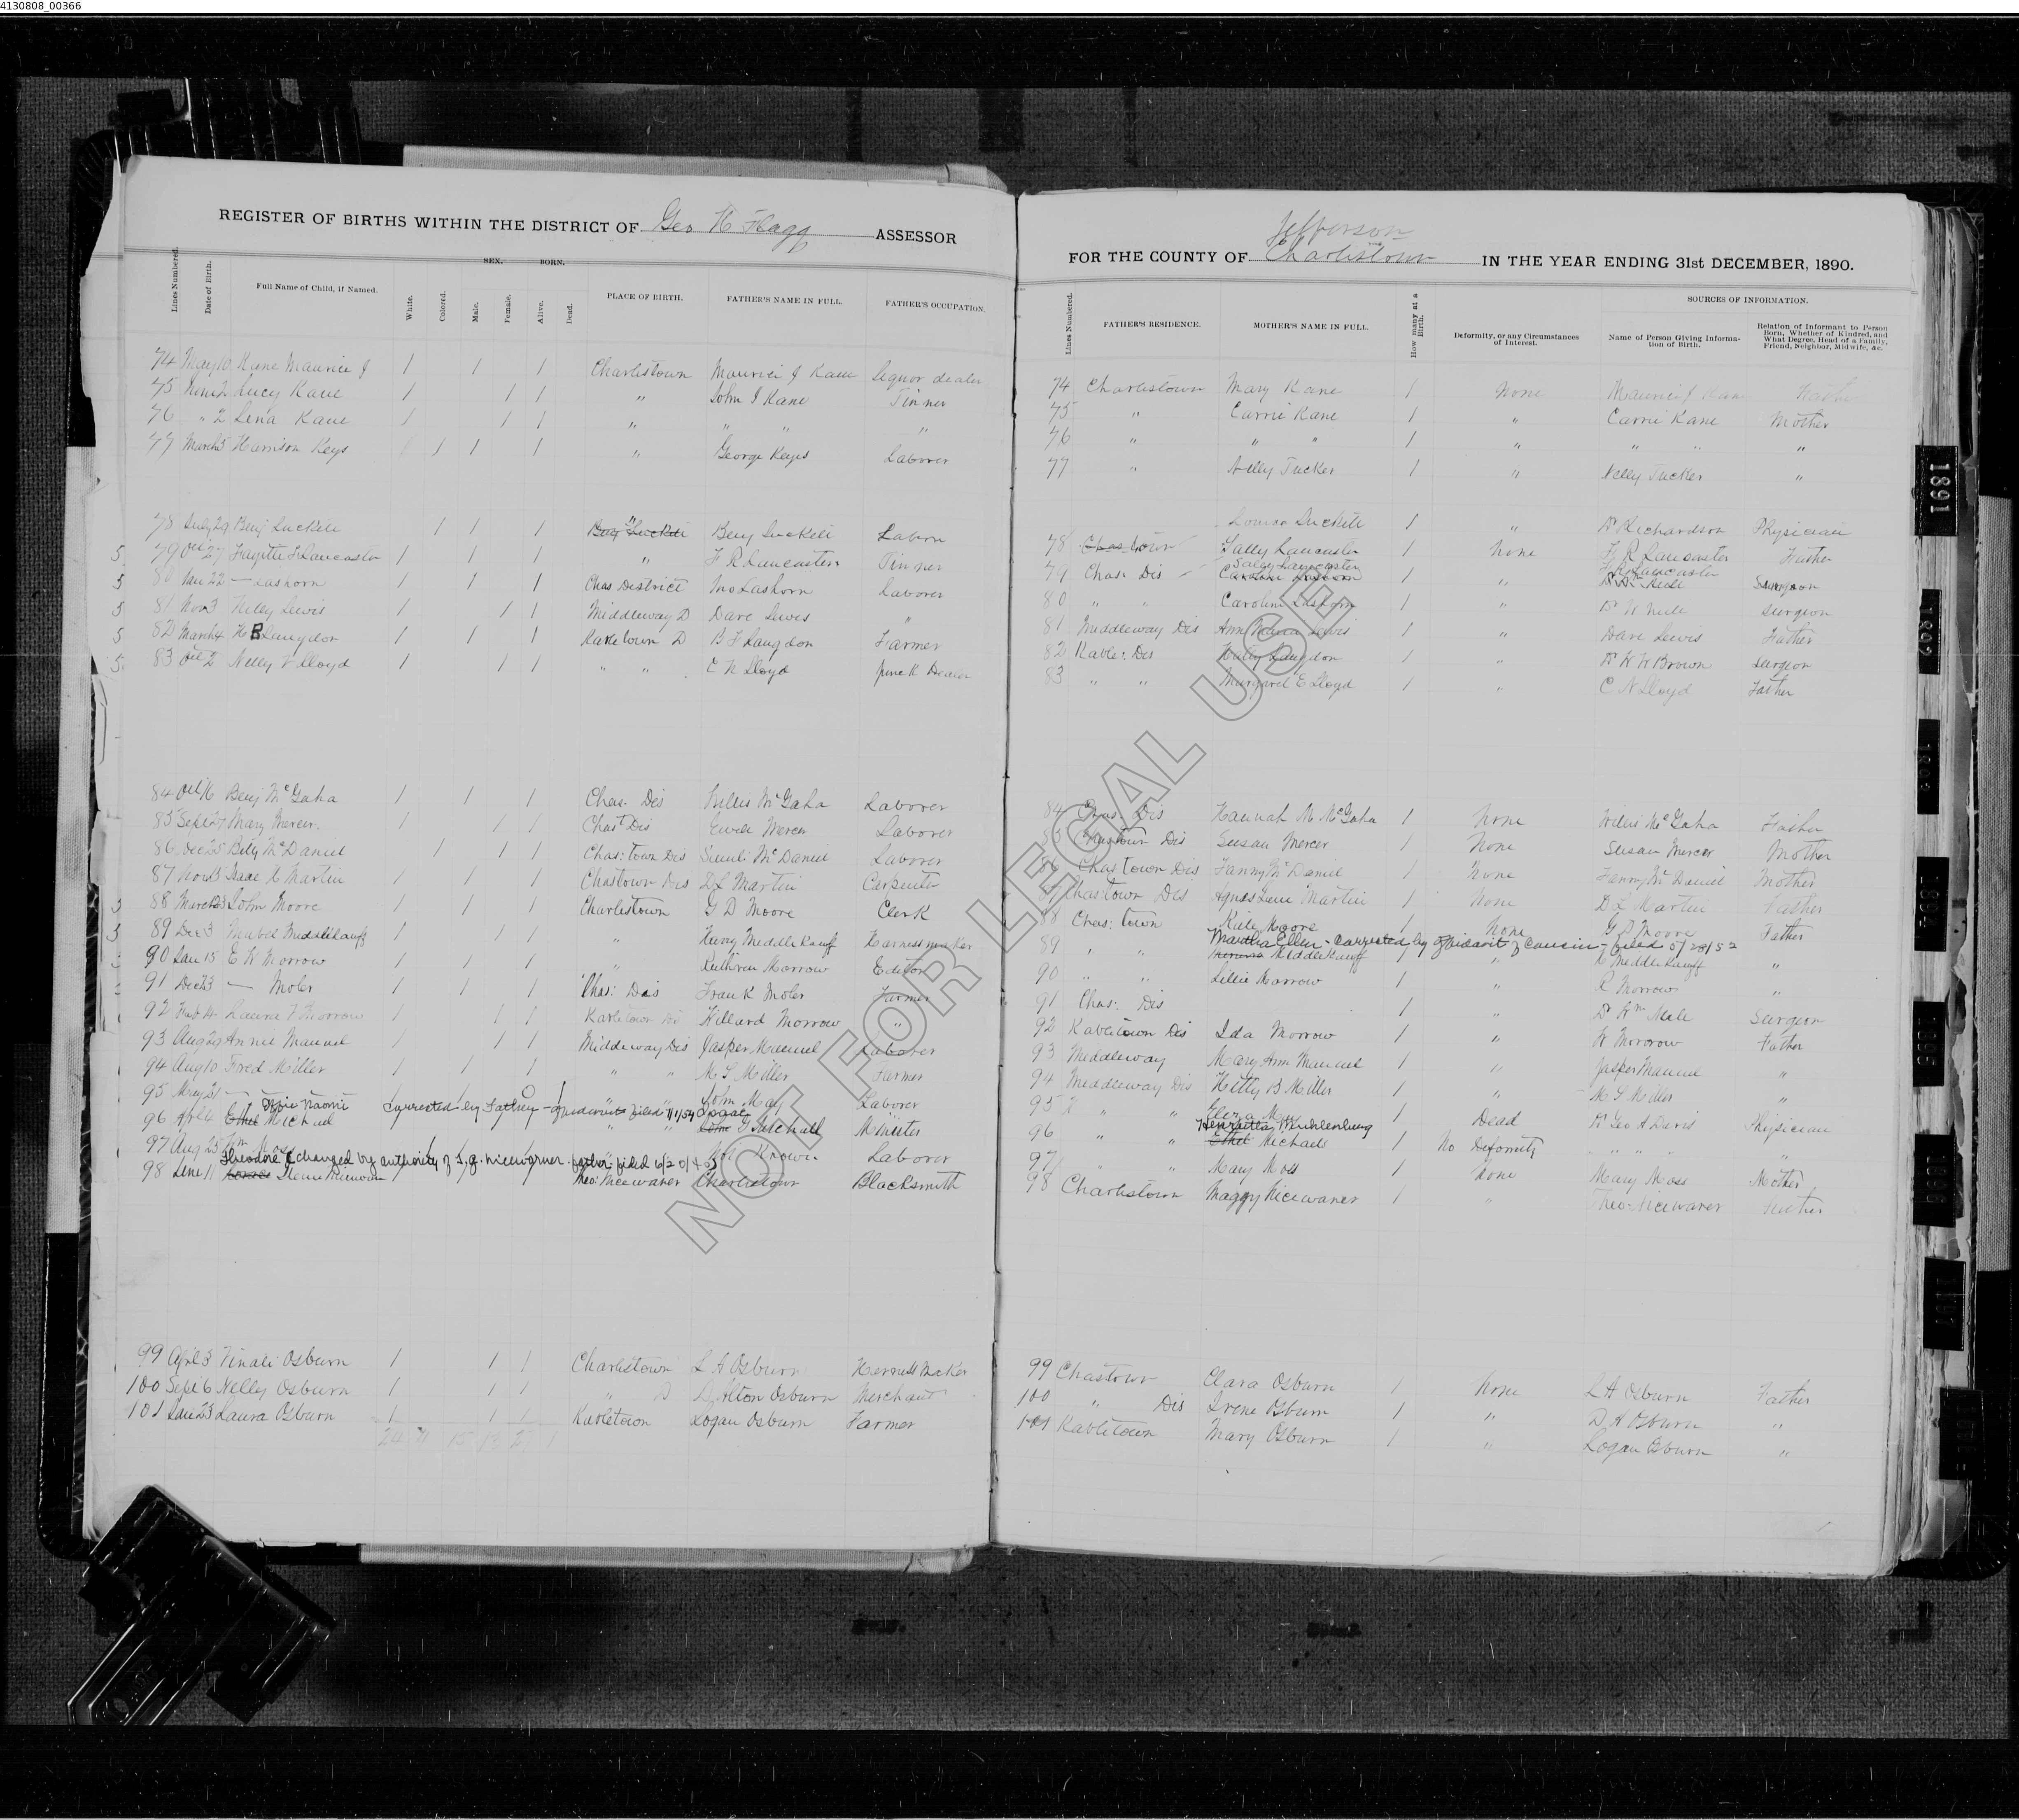 4130808_00366
REGISTER OF BIRTHS WITHIN THE DISTRICT OF Geo H Flagg ASSESSOR
Lines Numbered. Date of Birth. Full Name of Child, if Named. White. Colored. SEX. Male. Female. BORN. Alive. Dead. PLACE OF BIRTH. FATHER'S NAME IN FULL. FATHER'S OCCUPATION.
74 May 10 Kane Maurice J 1 1 1 Charlestown Maurice J Kane Liquor dealer
75 2 Lucy Kane 1 1 1 " John J Kane Tinner
76 " 2 Lena Kane 1 1 1 " " " "
77 March 5 Harrison Keys 1 1 1 " George Keyes Laborer
78 July 29 Benj Luckett 1 1 1 " Benj Luckett Labor
5 79 Oct 27 Fayette F Lancaster 1 1 1 " F R Lancaster Tinner
5 80 Jan 22 — Lashorn 1 1 1 Chas District Lashorn Laborer
5 81 Nov 3 Lewis 1 1 1 Middleway D Dave Lewis "
5 82 March 4 H B Langdon 1 1 1 Kabletown D B F Langdon Farmer
5 83 Oct 2 Nelly V Lloyd 1 1 1 " " C N Lloyd Junk Dealer
84 Oct 16 Benj McGaha 1 1 1 Chas. Dis Willis McGaha Laborer
85 Sept 27 Mary Mercer. 1 1 1 Chast Dis Mercer Laborer
86 Dec 25 Betty McDaniel 1 1 1 Chas: town Dis McDaniel Laborer
87 Nov 3 Isaac Martin 1 1 1 Chastown Dis D L Martin Carpenter
88 March 23 John Moore 1 1 1 Charlestown G D Moore Clerk
89 Dec 3 Mabel Middlekauff 1 1 1 " Harry Middlekauff Harnessmaker
90 Jan 15 E W Morrow 1 1 1 " Morrow Editor
91 Dec 23 — Moler 1 1 1 Chas: Dis Frank Moler Farmer
92 Laura F Morrow 1 1 1 Kabletown Dis Willard Morrow "
93 Aug 29 Annie Manuel 1 1 1 Middleway Dis Jasper Manuel Laborer
94 Aug 10 Fred Miller 1 1 1 " " M S Miller Farmer
95 May 21 — John May Laborer
Naomi corrected by Father - filed 7/1/54 Isaac
96 April 4 Ethel Michael G Michael Minister
97 Aug 25 Wm Moss Not Known Laborer
Theodore changed by authority of father - filed 6/2
98 June 11 Horace Theo: Nicewaner Charlestown Blacksmith
99 April 3 Osburn 1 1 1 Charlestown L H Osburn Harness Maker
100 Sept 6 Nelly Osburn 1 1 1 " D D Alton Osburn Merchant
101 Jan 23 Laura Osburn 1 1 1 Kabletown Logan Osburn Farmer
Jefferson
FOR THE COUNTY OF Charlestown IN THE YEAR ENDING 31st DECEMBER, 1890.
SOURCES OF INFORMATION.
Lines Numbered. FATHER'S RESIDENCE. MOTHER'S NAME IN FULL. How many at a Birth. Deformity, or any Circumstances of Interest. Name of Person Giving Information of Birth. Relation of Informant to Person Born, Whether of Kindred, and What Degree, Head of a Family, Friend, Neighbor, Midwife, &c.
74 Charlestown Mary Kane 1 None Maurice J Kane Father
75 " Carrie Kane 1 " Carrie Kane Mother
76 " " " 1 " " " "
77 " Nelly Tucker 1 " Nelly Tucker "
Louisa Luckett 1 " Dr Richardson Physician
78 Chas town Sally Lancaster 1 None F R Lancaster Father
Sally Lancaster F R Lancaster
79 Chas. Dis Caroline Lashorn 1 " Surgeon
80 " " Caroline Lashorn 1 " Dr Surgeon
81 Middleway Dis Ann Maria Lewis 1 " Dave Lewis Father
82 Kable: Dis Langdon 1 " Dr Brown Surgeon
83 " " Margaret E Lloyd 1 " C N Lloyd Father
84 Chas Dis Hannah M McGaha 1 None Willis McGaha Father
85 Chastown Dis Susan Mercer 1 None Susan Mercer Mother
86 Chastown Dis Fanny McDaniel 1 None Fanny McDaniel Mother
87 Chastown Dis Agnes Martin 1 None D L Martin Father
88 Chas: town Kate Moore 1 None G D Moore Father
Martha Ellen - Corrected by affidavit of cousin - filed 5/29/52
89 " " Middlekauff " Middlekauff "
90 " " Lillie Morrow 1 " Morrow "
91 Chas: Dis 1 " Dr Wm Surgeon
92 Kabletown Dis Ida Morrow 1 " W Morrow Father
93 Middleway Mary Ann Manuel 1 " Jasper Manuel "
94 Middleway Dis Kitty B Miller 1 " M S Miller "
95 " " May 1 Dead Dr Geo A Davis Physician
Henrietta Muhlenburg
96 " " Ethel Michael 1 No Deformity " " " "
97 " " Mary Moss 1 None Mary Moss Mother
98 Charlestown Maggy Nicewaner 1 " Theo: Nicewaner Father
99 Chastown Clara Osburn 1 None L H Osburn Father
100 " Dis Irene Osburn 1 " D A Osburn "
101 Kabletown Mary Osburn 1 " Logan Osburn "
NOT FOR LEGAL USE
1891
1892
1893
1895
1896